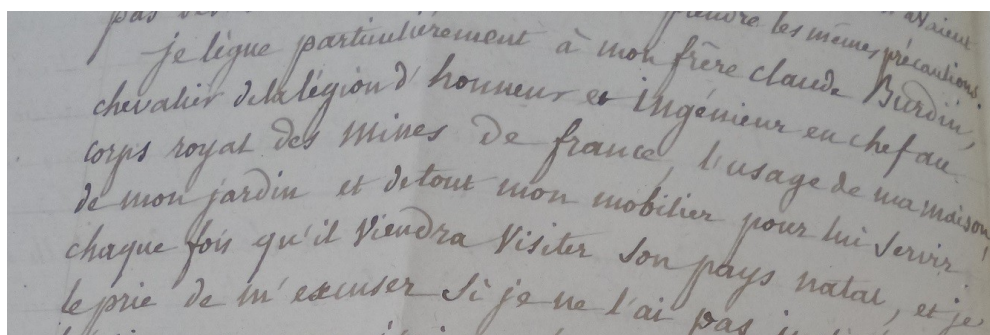 prendre les mêmes précautions.
je lègue particulièrement à mon frère claude Burdin,
chevalier de la légion d'honneur et ingénieur en chef au
corps royal des mines de france, l'usage de ma maison,
de mon jardin et de tout mon mobilier pour lui servir
chaque fois qu'il viendra visiter son pays natal, et je
le prie de m'excuser si je ne l'ai pas